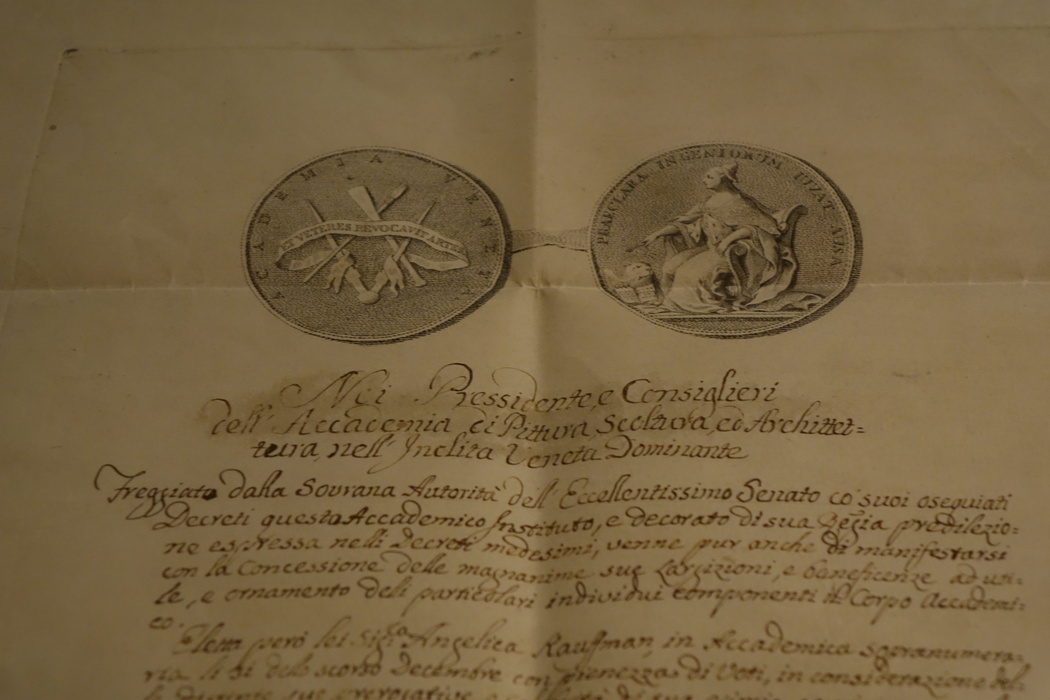 ACADEMIA VENETA
ET VETERES REVOCAVIT ARTES
PRAECLARA INGENIORUM IUVAT AUSA
Noi Pressidente, e Consiglieri
dell' Accademia di Pittura, Scoltura, ed Architet=
tura, nell' Inclita Veneta Dominante
Freggiato dalla Sovrana Autorità dell' Eccellentissimo Senato co' suoi osequiati
Decreti questo Accademico Instituto, e decorato di sua Regia predilezio=
ne espressa nelli Decreti medesimi, venne pur anche di manifestarsi
con la Concessione delle magnanime sue Largizioni, e beneficenze ad uti=
le, e ornamento deli particolari individui componenti il Corpo Accademi=
co.
Eletta però lei Sig.ra Angelica Kauffman, in Accademica sopranumera=
ria li 31 dello scorso Decembre con pienezza di Voti, in considerazione del=
le distinte sue prerogative e di sua